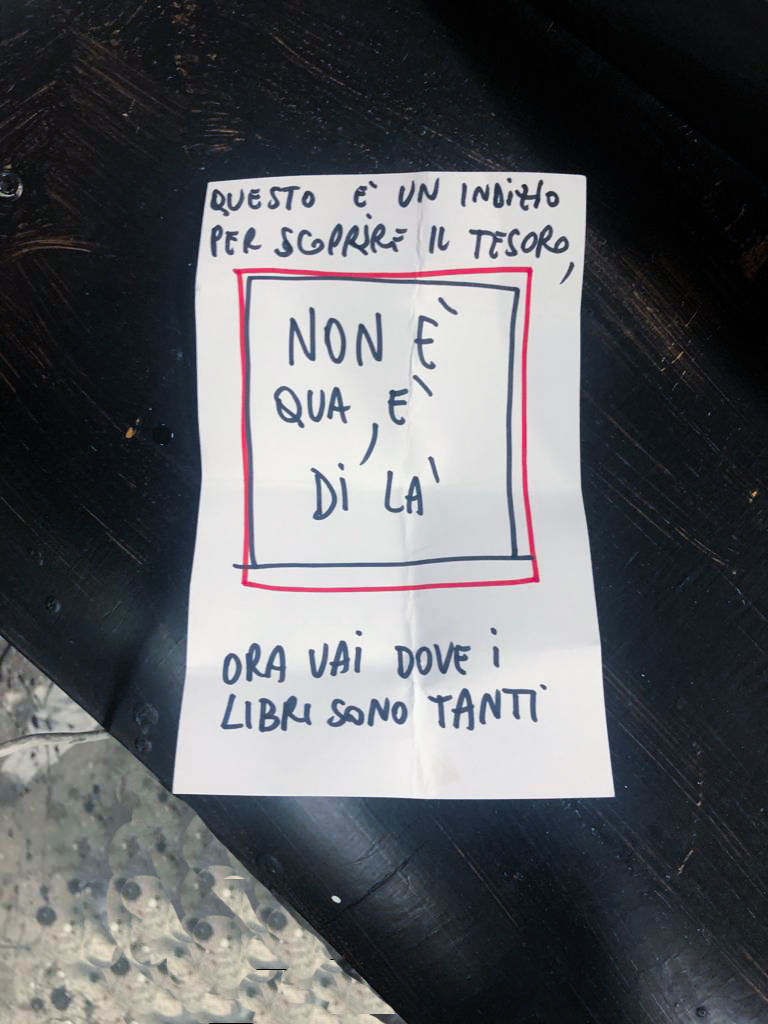 QUESTO È UN INDIZIO
PER SCOPRIRE IL TESORO,
NON È
QUA, È
Di LÀ
ORA VAi DOVE i
LIBRI SONO TANTI